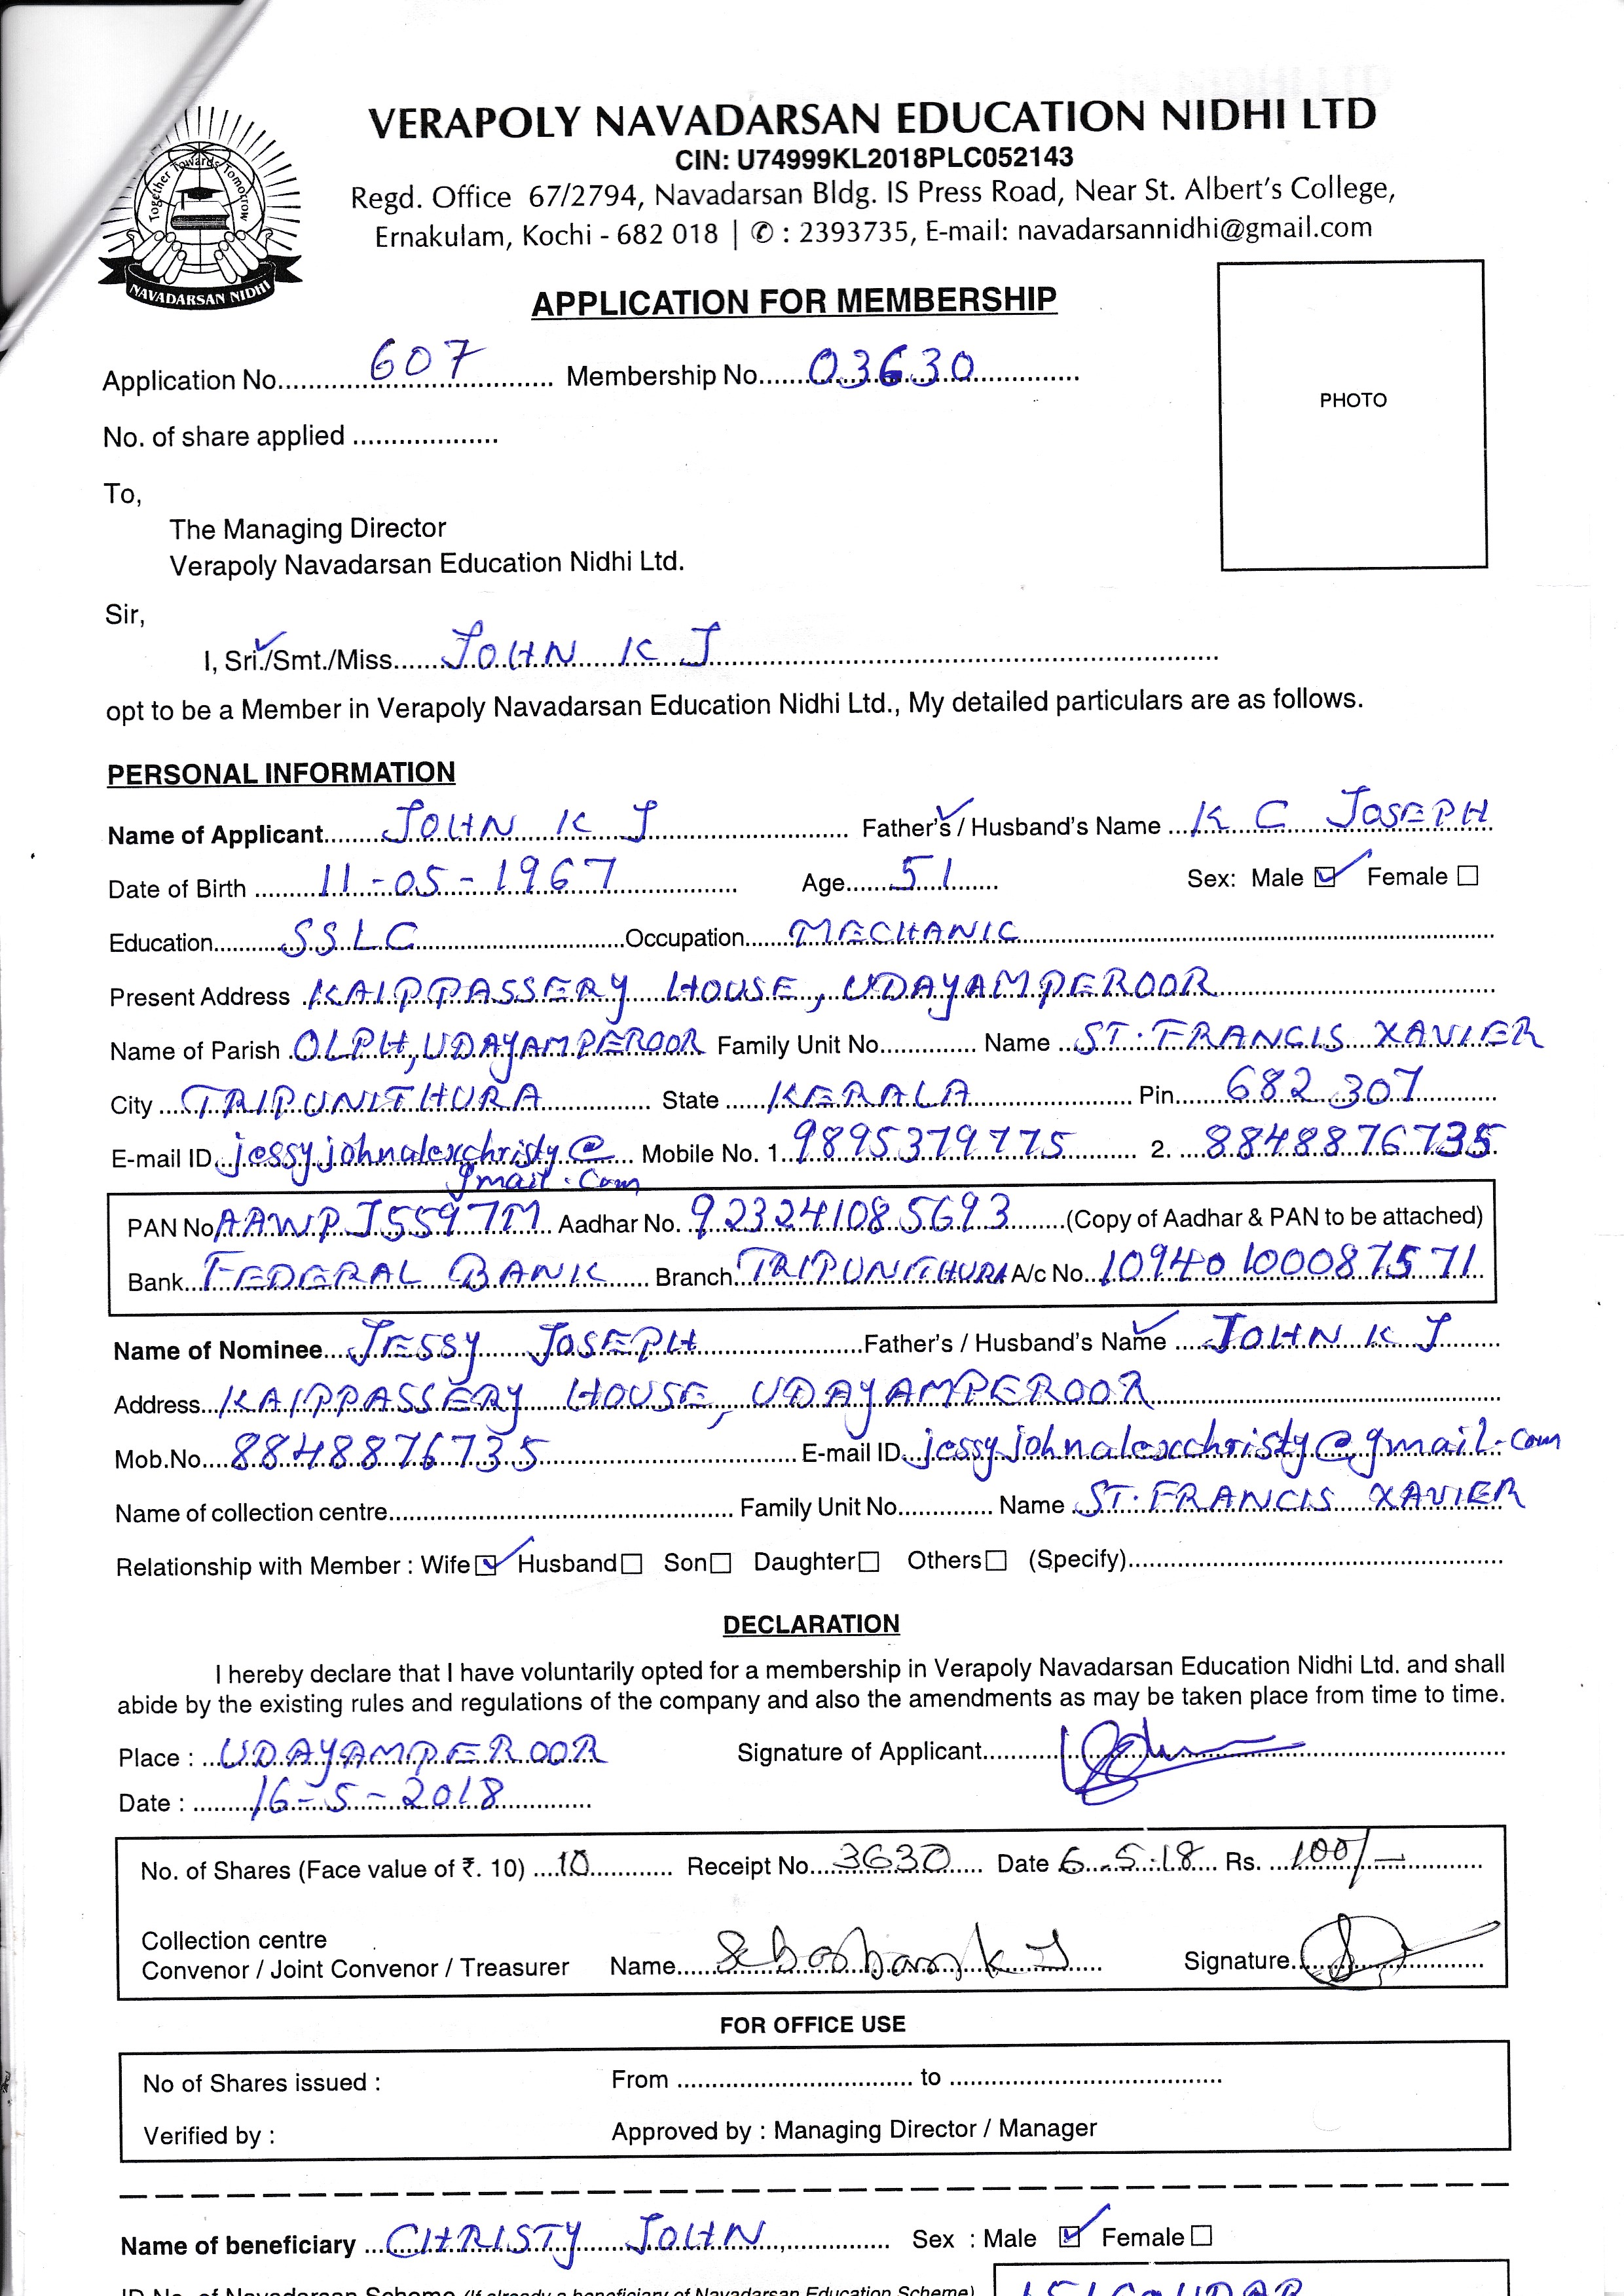 VERAPOLY NAVADARSAN EDUCATION NIDHI LTD
CIN: U74999KL2018PLC052143
Regd. Office 67/2794, Navadarsan Bldg. IS Press Road, Near St. Albert's College,
Ernakulam, Kochi - 682 018 | ✆ : 2393735, E-mail: navadarsannidhi@gmail.com
Together Towards Tomorrow
NAVADARSAN NIDHI
APPLICATION FOR MEMBERSHIP
Application No. 607 Membership No. 03630
PHOTO
No. of share applied
To,
The Managing Director
Verapoly Navadarsan Education Nidhi Ltd.
Sir,
I, Sri./Smt./Miss. JOHN K J
opt to be a Member in Verapoly Navadarsan Education Nidhi Ltd., My detailed particulars are as follows.
PERSONAL INFORMATION
Name of Applicant JOHN K J Father's / Husband's Name K C JOSEPH
Date of Birth 11-05-1967 Age 51 Sex: Male ☑ Female ☐
Education SSLC Occupation MECHANIC
Present Address KAIPPASSERY HOUSE, UDAYAMPEROOR
Name of Parish OLPH, UDAYAMPEROOR Family Unit No. Name ST. FRANCIS XAVIER
City TRIPUNITHURA State KERALA Pin 682 307
E-mail ID jessyjohnalexchristy@ Mobile No. 1. 9895379775 2. 8848876735
gmail.com
PAN No AAWPJ5597M Aadhar No. 923241085693 (Copy of Aadhar & PAN to be attached)
Bank FEDERAL BANK Branch TRIPUNITHURA A/c No. 10940100087571
Name of Nominee JESSY JOSEPH Father's / Husband's Name JOHN K J
Address KAIPPASSERY HOUSE, UDAYAMPEROOR
Mob.No. 8848876735 E-mail ID jessyjohnalexchristy@gmail.com
Name of collection centre Family Unit No. Name ST. FRANCIS XAVIER
Relationship with Member : Wife ☑ Husband ☐ Son ☐ Daughter ☐ Others ☐ (Specify)
DECLARATION
I hereby declare that I have voluntarily opted for a membership in Verapoly Navadarsan Education Nidhi Ltd. and shall
abide by the existing rules and regulations of the company and also the amendments as may be taken place from time to time.
Place : UDAYAMPEROOR Signature of Applicant
Date : 16-5-2018
No. of Shares (Face value of ₹. 10) 10 Receipt No. 3630 Date 6.5.18 Rs. 100/-
Collection centre
Convenor / Joint Convenor / Treasurer Name K J Signature
FOR OFFICE USE
No of Shares issued : From to
Verified by : Approved by : Managing Director / Manager
Name of beneficiary CHRISTY JOHN Sex : Male ☑ Female ☐
ID No. of Navadarsan Scheme (If already a beneficiary of Navadarsan Education Scheme)